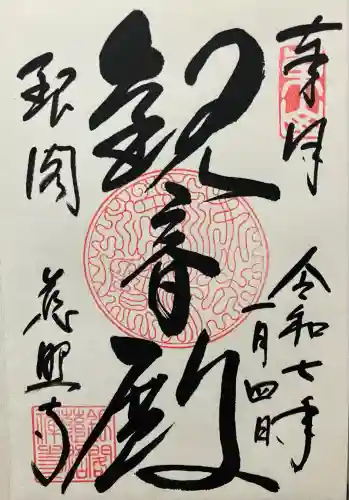 奉拝
令和七年
一月四日
観音殿
銀閣
慈照寺